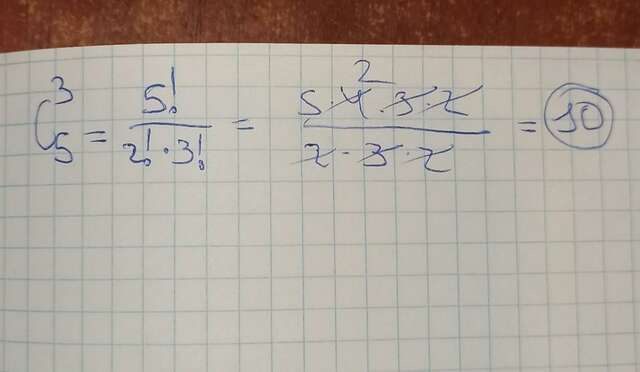 C₅³ = 5! / (2! · 3!) = (5 · 4 · 3 · 2) / (2 · 3 · 2) = 10
2